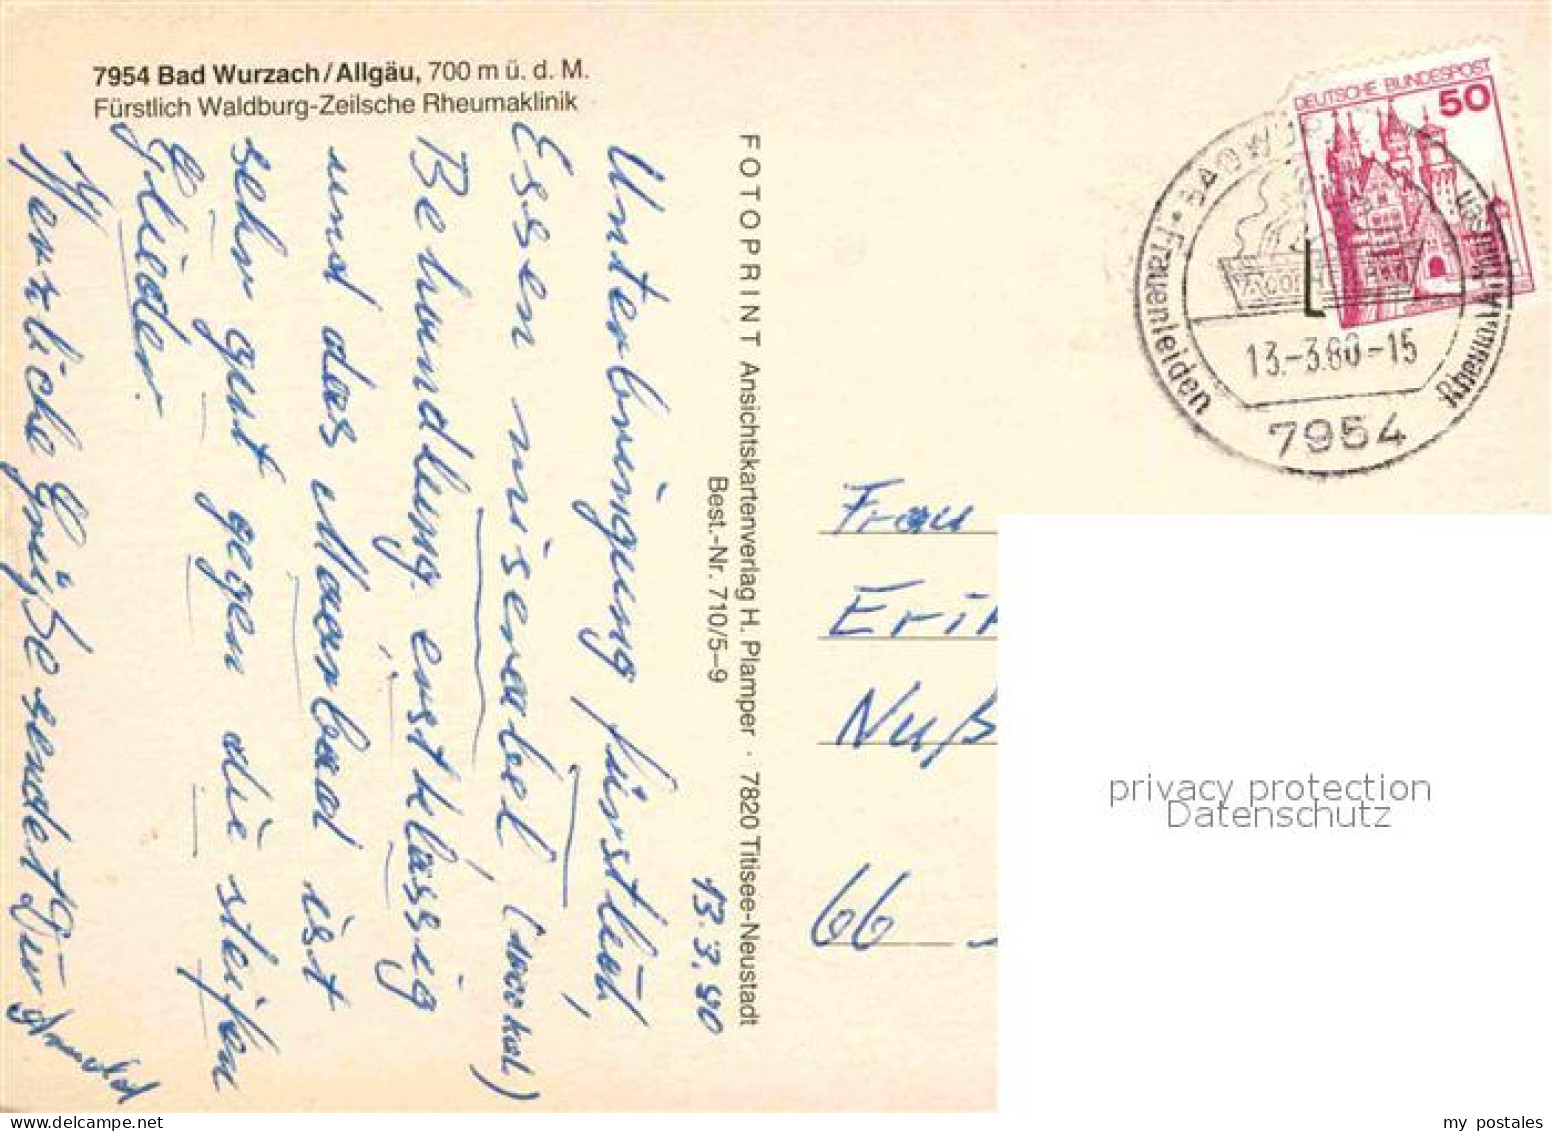 7954 Bad Wurzach/Allgäu, 700 m ü. d. M.
Fürstlich Waldburg-Zeilsche Rheumaklinik
13.3.80
Unterbringung fürstlich,
Essen miserabel, (1000 kal.)
Behandlung erstklassig
und das Moorbad ist
sehr gut gegen die steifen
Glieder.
Herzliche Grüße sendet Dir
FOTOPRINT Ansichtskartenverlag H. Plamper · 7820 Titisee-Neustadt
Best.-Nr. 710/5-9
DEUTSCHE BUNDESPOST
50
Frauenleiden
13.-3.80-15
7954
Frau
Eri
Nuß
66
privacy protection
Datenschutz
my postales